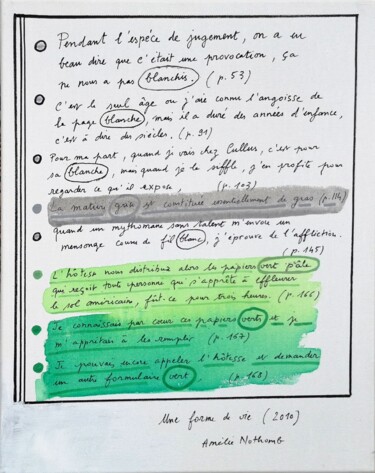 Pendant l'espèce de jugement, on a eu
beau dire que c'était une provocation, ça
ne nous a pas blanchis. (p. 53)
C'est le seul âge où j'aie connu l'angoisse de
la page blanche, mais il a duré des années d'enfance,
c'est à dire des siècles. (p. 91)
Pour ma part, quand je vais chez Cullus, c'est pour
sa blanche, mais quand je la siffle, j'en profite pour
regarder ce qu'il expose, (p. 103)
La matière grise est constituée essentiellement de gras (p. 114)
quand un mythomane sans talent m'envoie un
mensonge cousu de fil blanc, j'éprouve de l'affliction.
(p. 145)
L'hôtesse nous distribua alors les papiers vert pâle
que reçoit toute personne qui s'apprête à effleurer
le sol américain, fût-ce pour trois heures. (p. 166)
Je connaissais par cœur ces papiers verts et je
m'apprêtais à les remplir (p. 167)
Je pouvais encore appeler l'hôtesse et demander
un autre formulaire vert (p. 168)
Une forme de vie (2010)
Amélie Nothomb